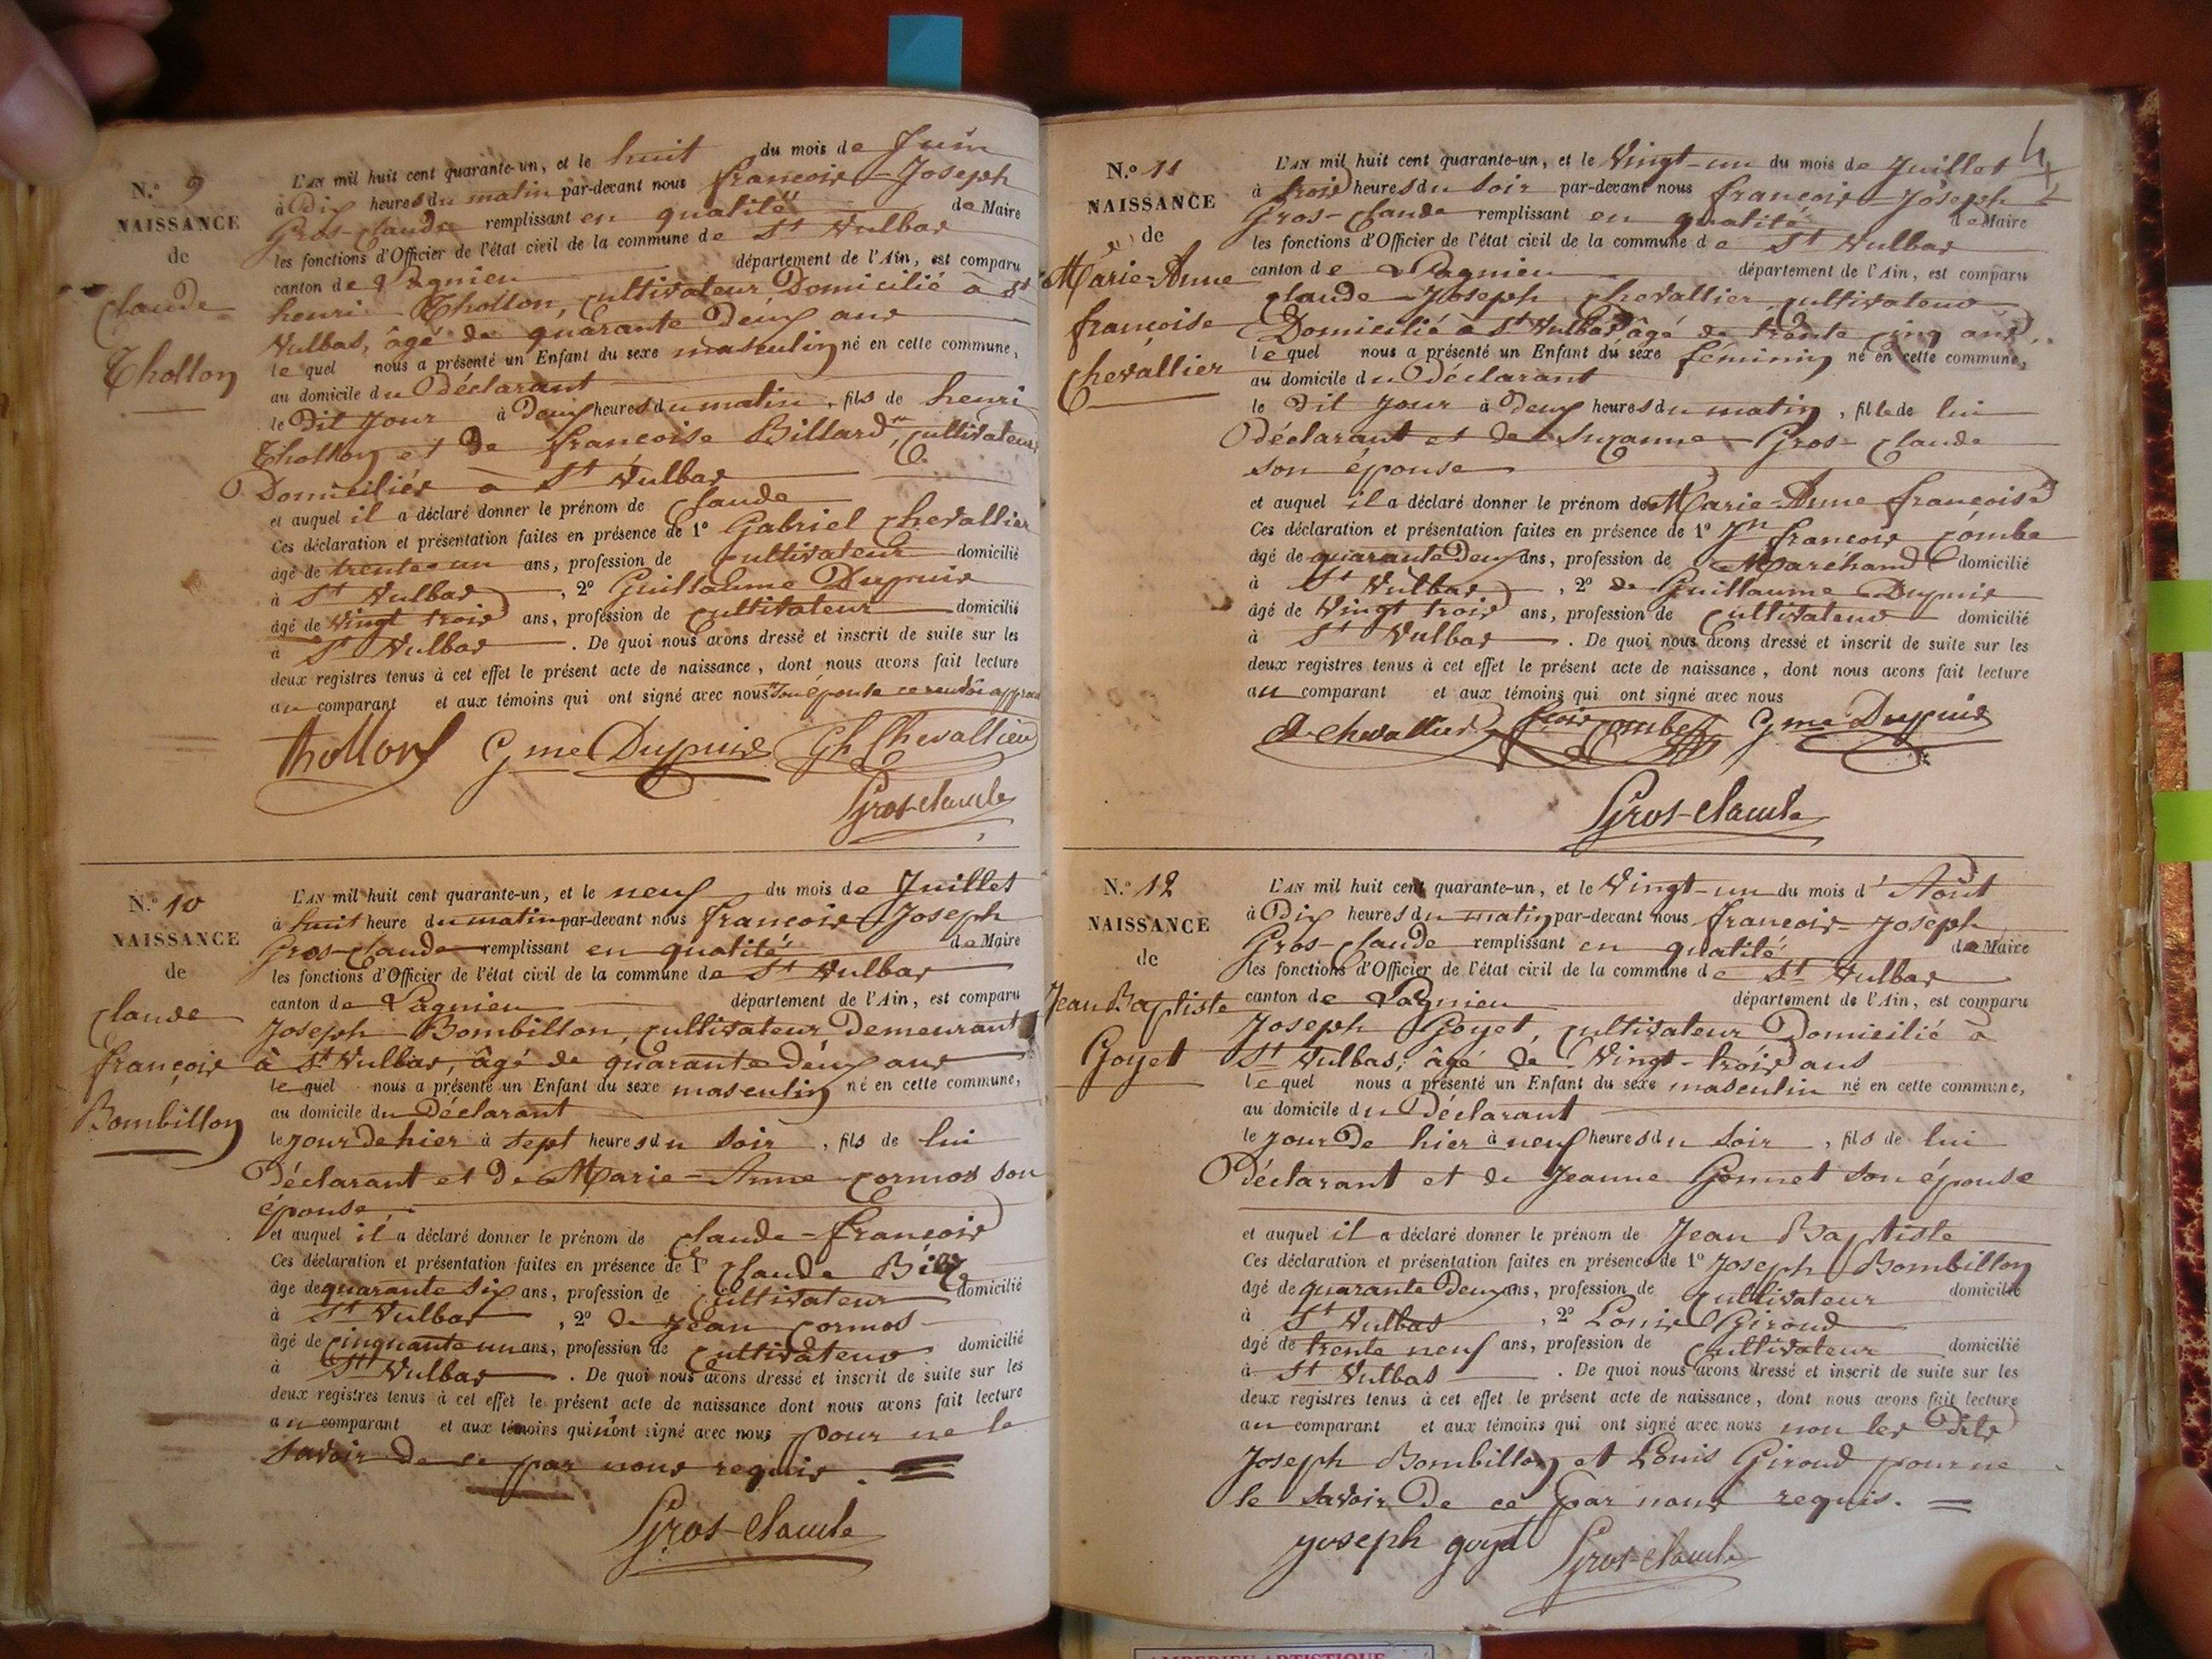 N.º 9
NAISSANCE
de
Claude
Thollon
L'AN mil huit cent quarante-un, et le huit du mois de Juin
à Dix heures du matin par-devant nous françois-Joseph
Gros-Claude remplissant en qualité de Maire
les fonctions d'Officier de l'état civil de la commune de St Vulbas
canton de Lagnieu département de l'Ain, est comparu
henri Thollon, Cultivateur Domicilié à St
Vulbas, âgé de quarante Deux ans
le quel nous a présenté un Enfant du sexe masculin né en cette commune,
au domicile du Déclarant
le Dit Jour à Deux heures du matin, fils de henri
Thollon et de françoise Billard, Cultivateurs
Domiciliés à St Vulbas
et auquel il a déclaré donner le prénom de Claude
Ces déclaration et présentation faites en présence de 1º Gabriel Chevallier
âgé de trente-un ans, profession de Cultivateur domicilié
à St Vulbas, 2º Guillaume Dupuis
âgé de Vingt trois ans, profession de Cultivateur domicilié
à St Vulbas. De quoi nous avons dressé et inscrit de suite sur les
deux registres tenus à cet effet le présent acte de naissance, dont nous avons fait lecture
au comparant et aux témoins qui ont signé avec nous
thollon Gme Dupuis Gh Chevallier
Gros-Claude
N.º 10
NAISSANCE
de
Claude
françois
Bombillon
L'AN mil huit cent quarante-un, et le neuf du mois de Juillet
à huit heure du matin par-devant nous françois-Joseph
Gros-Claude remplissant en qualité de Maire
les fonctions d'Officier de l'état civil de la commune de St Vulbas
canton de Lagnieu département de l'Ain, est comparu
Joseph Bombillon, Cultivateur Demeurant
à St Vulbas, âgé de quarante Deux ans
le quel nous a présenté un Enfant du sexe masculin né en cette commune,
au domicile du Déclarant
le Jour De hier à sept heures du soir, fils de lui
Déclarant et De Marie-Anne Cormos son
épouse
et auquel il a déclaré donner le prénom de Claude-françois
Ces déclaration et présentation faites en présence de 1º Claude
âgé de quarante Six ans, profession de Cultivateur domicilié
à St Vulbas, 2º de Jean Cormos
âgé de Cinquante un ans, profession de Cultivateur domicilié
à St Vulbas. De quoi nous avons dressé et inscrit de suite sur les
deux registres tenus à cet effet le présent acte de naissance dont nous avons fait lecture
au comparant et aux témoins qui n'ont signé avec nous pour ne le
savoir De ce par nous requis.
Gros-Claude
4
N.º 11
NAISSANCE
de
Marie-Anne
françoise
Chevallier
L'AN mil huit cent quarante-un, et le Vingt-un du mois de Juillet
à trois heures du soir par-devant nous françois-Joseph
Gros-Claude remplissant en qualité de Maire
les fonctions d'Officier de l'état civil de la commune de St Vulbas
canton de Lagnieu département de l'Ain, est comparu
Claude-Joseph Chevallier Cultivateur
Domicilié à St Vulbas âgé de trente Cinq ans,
le quel nous a présenté un Enfant du sexe féminin né en cette commune,
au domicile du Déclarant
le Dit Jour à Deux heures du matin, fille de lui
Déclarant et de Suzanne Gros-Claude
son épouse
et auquel il a déclaré donner le prénom de Marie-Anne françoise
Ces déclaration et présentation faites en présence de 1º Jn françois Combe
âgé de quarante Deux ans, profession de Maréchand domicilié
à St Vulbas, 2º de Guillaume Dupuis
âgé de Vingt trois ans, profession de Cultivateur domicilié
à St Vulbas. De quoi nous avons dressé et inscrit de suite sur les
deux registres tenus à cet effet le présent acte de naissance, dont nous avons fait lecture
au comparant et aux témoins qui ont signé avec nous
Chevallier frois Combe Gme Dupuis
Gros-Claude
N.º 12
NAISSANCE
de
Jean Baptiste
Goyet
L'AN mil huit cent quarante-un, et le Vingt-un du mois d'Août
à Dix heures du matin par-devant nous françois-Joseph
Gros-Claude remplissant en qualité de Maire
les fonctions d'Officier de l'état civil de la commune de St Vulbas
canton de Lagnieu département de l'Ain, est comparu
Joseph Goyet, Cultivateur Domicilié à
St Vulbas, âgé de Vingt-trois ans
le quel nous a présenté un Enfant du sexe masculin né en cette commune,
au domicile du Déclarant
le Jour De hier à neuf heures du soir, fils de lui
Déclarant et de Jeanne Gonnet son épouse
et auquel il a déclaré donner le prénom de Jean Baptiste
Ces déclaration et présentation faites en présence de 1º Joseph Bombillon
âgé de quarante Deux ans, profession de Cultivateur domicilié
à St Vulbas, 2º Louis Giroud
âgé de trente neuf ans, profession de Cultivateur domicilié
à St Vulbas. De quoi nous avons dressé et inscrit de suite sur les
deux registres tenus à cet effet le présent acte de naissance, dont nous avons fait lecture
au comparant et aux témoins qui ont signé avec nous non les Dits
Joseph Bombillon et Louis Giroud pour ne
le savoir De ce par nous requis.
joseph goyet Gros-Claude
AMBERIEU ARTISTIQUE